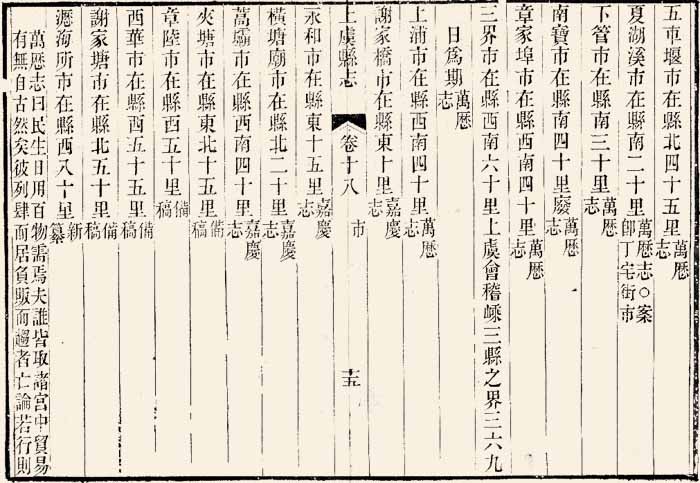 五車堰市在縣北四十五里萬厯志
夏湖溪市在縣南二十里萬厯志○案卽丁宅街市
下管市在縣南三十里萬厯志
南寶市在縣南四十里廢萬厯志
章家埠市在縣西南四十里萬厯志
三界市在縣西南六十里上虞會稽嵊三縣之界三六九
日爲期萬厯志
上浦市在縣西南四十里萬厯志
謝家橋市在縣東十里嘉慶志
上虞縣志 卷十八 市 十五
永和市在縣東十五里嘉慶志
橫塘廟市在縣北二十里嘉慶志
蒿壩市在縣西南四十里嘉慶志
夾塘市在縣東北十五里備稿
章陸市在縣西五十里備稿
西華市在縣西五十五里備稿
謝家塘市在縣北五十里備稿
瀝海所市在縣西八十里新纂
萬厯志曰民生日用百物需焉夫誰皆取諸宮中貿易
有無自古然矣彼列肆而居負販而趨者亡論若行則